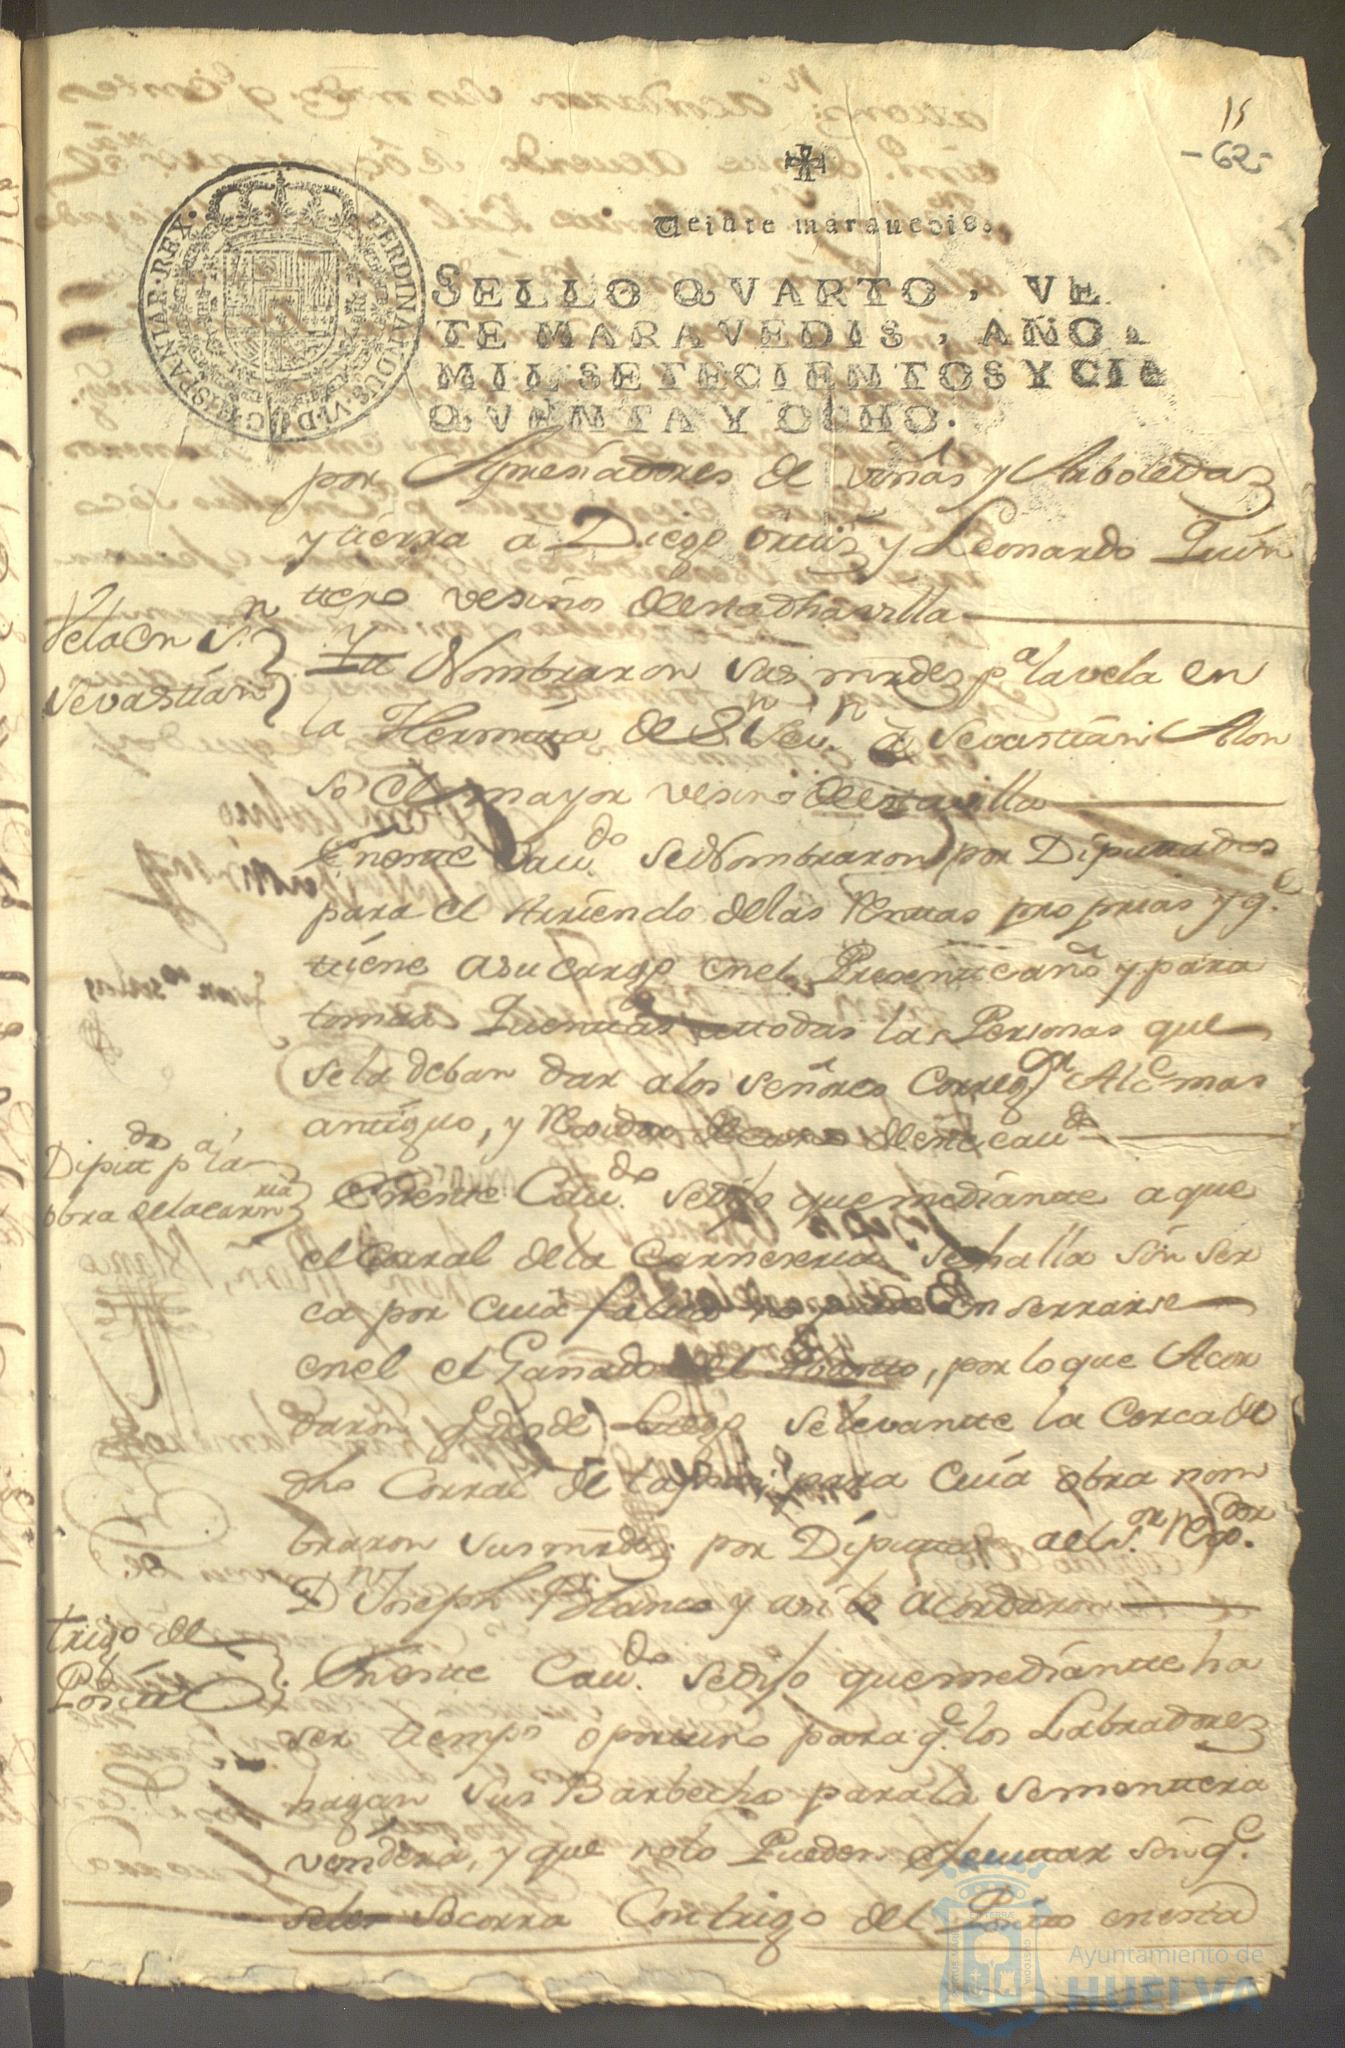 15
-62-
Veinte maravedis.
SELLO QVARTO, VE
TE MARAVEDIS, AÑO
MIL SETECIENTOS Y CIN
QVENTA Y OCHO.
FERDINANDUS·VI·D·G·HISPANIAR·REX·
por Apresiadores de viñas y Arboledas
y tierra a Diego Ortiz y Leonardo Quin
tero vesinos de esta dha villa
Vela en Sn
Sevastian
Yt Nombraron sus mrdes pa la vela en
la Hermita de Sn Sevn a Sevastian Alon
so el mayor vesino de esta villa
En este Cavdo se Nombraron por Diputados
para el Arriendo de las Rentas proprias y qe
tiene a su cargo en el Presente año y para
tomar Quentas a todas las Personas que
se la deban dar a los señores Corregor Alce mas
antiguo, y Residor Decano de este cavdo
Diputdo pa la
obra de la carnria
En este Cavdo se dijo que mediante a que
el Corral de la Carneseria se halla sin ser
ca por cuia falta no puede enserrarse
en el el Ganado del Abasto, por lo que Acor
daron qe desde Luego se levante la Cerca de
dho Corral de tapia; para cuia obra nom
braron sus mrdes por Diputado al Sor Rexdor
Dn Joseph Blanco y asi lo acordaron
trigo del
Posito
En este Cavdo se dijo que mediante ha
ser tiempo oportuno para qe los Labradores
hagan sus Barbecho para la sementera
vendera, y que no lo Pueden ejecutar sin qe
se les socorra Con trigo del Posito en esta
Ayuntamiento de
HUELVA